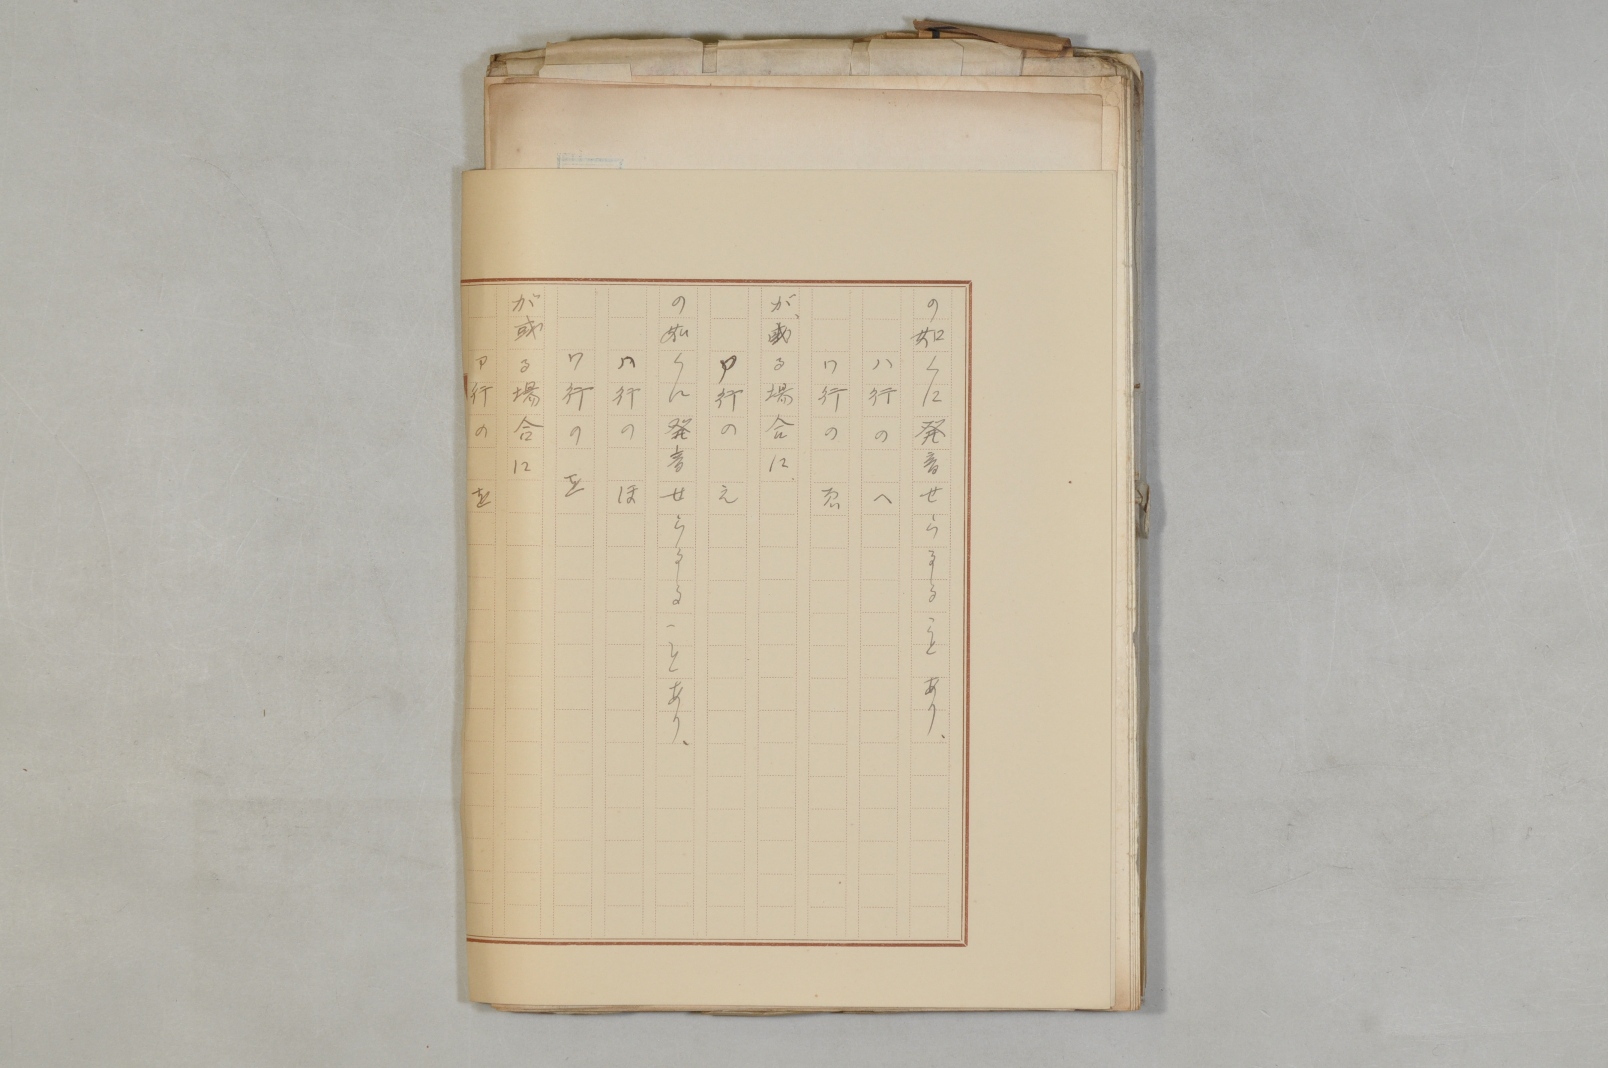 の如くに発音せらるることあり、
ハ行の へ
ワ行の ゑ
が、或る場合に
ア行の え
の如くに発音せらるることあり、
ハ行の ほ
ワ行の を
が或る場合に
ア行の を